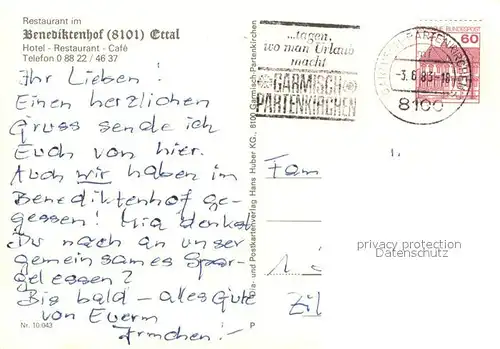 Restaurant im
Benediktenhof (8101) Ettal
Hotel - Restaurant - Café
Telefon 0 88 22 / 46 37
Ihr Lieben!
Einen herzlichen
Gruss sende ich
Euch von hier.
Auch wir haben im
Benediktenhof ge-
gessen! Mia denkst
Du noch an unser
gemeinsames Spar-
gelessen?
Bis bald - alles Gute
von Euerm
Irmchen.-
Nr. 10 043
P
Dia- und Postkartenverlag Hans Huber KG., 8100 Garmisch-Partenkirchen
...tagen,
wo man Urlaub
macht
GARMISCH
PARTENKIRCHEN
GARMISCH-PARTENKIRCHEN
-3.6.83-18
8100
60
Fam
privacy protection
Datenschutz